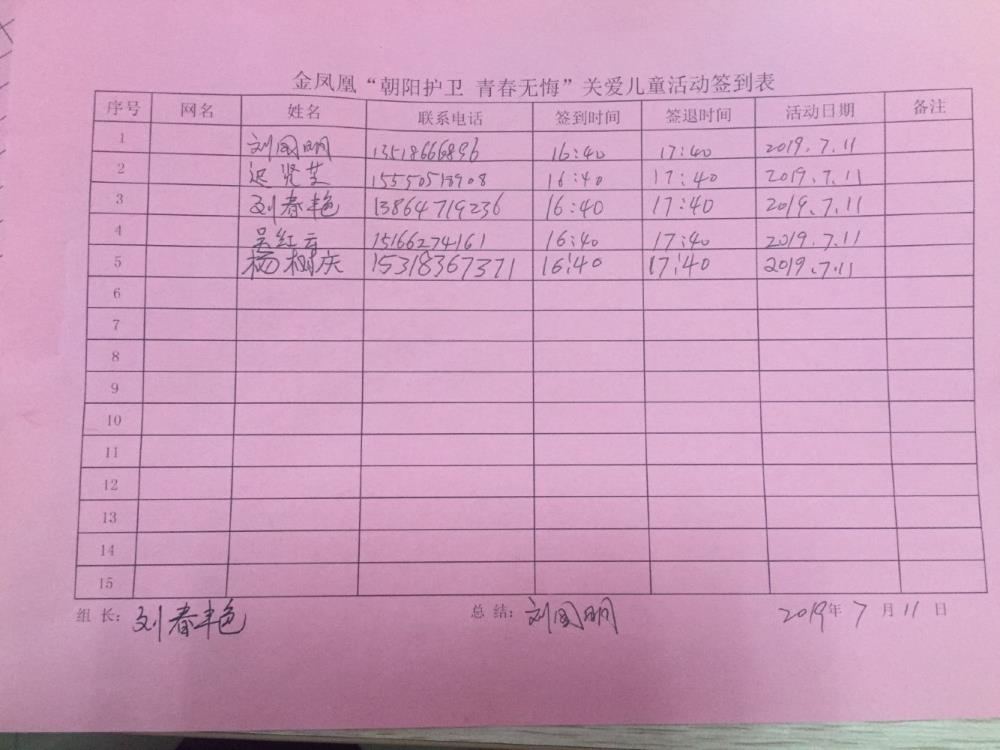 金凤凰“朝阳护卫 青春无悔”关爱儿童活动签到表
序号 网名 姓名 联系电话 签到时间 签退时间 活动日期 备注
1 刘国明 13518666896 16:40 17:40 2019.7.11
2 迟贤芝 15550518908 16:40 17:40 2019.7.11
3 刘春艳 13864719236 16:40 17:40 2019.7.11
4 吴红云 15166274161 16:40 17:40 2019.7.11
5 杨树庆 15318367371 16:40 17:40 2019.7.11
6
7
8
9
10
11
12
13
14
15
组长：刘春艳 总结：刘国明 2019年7月11日